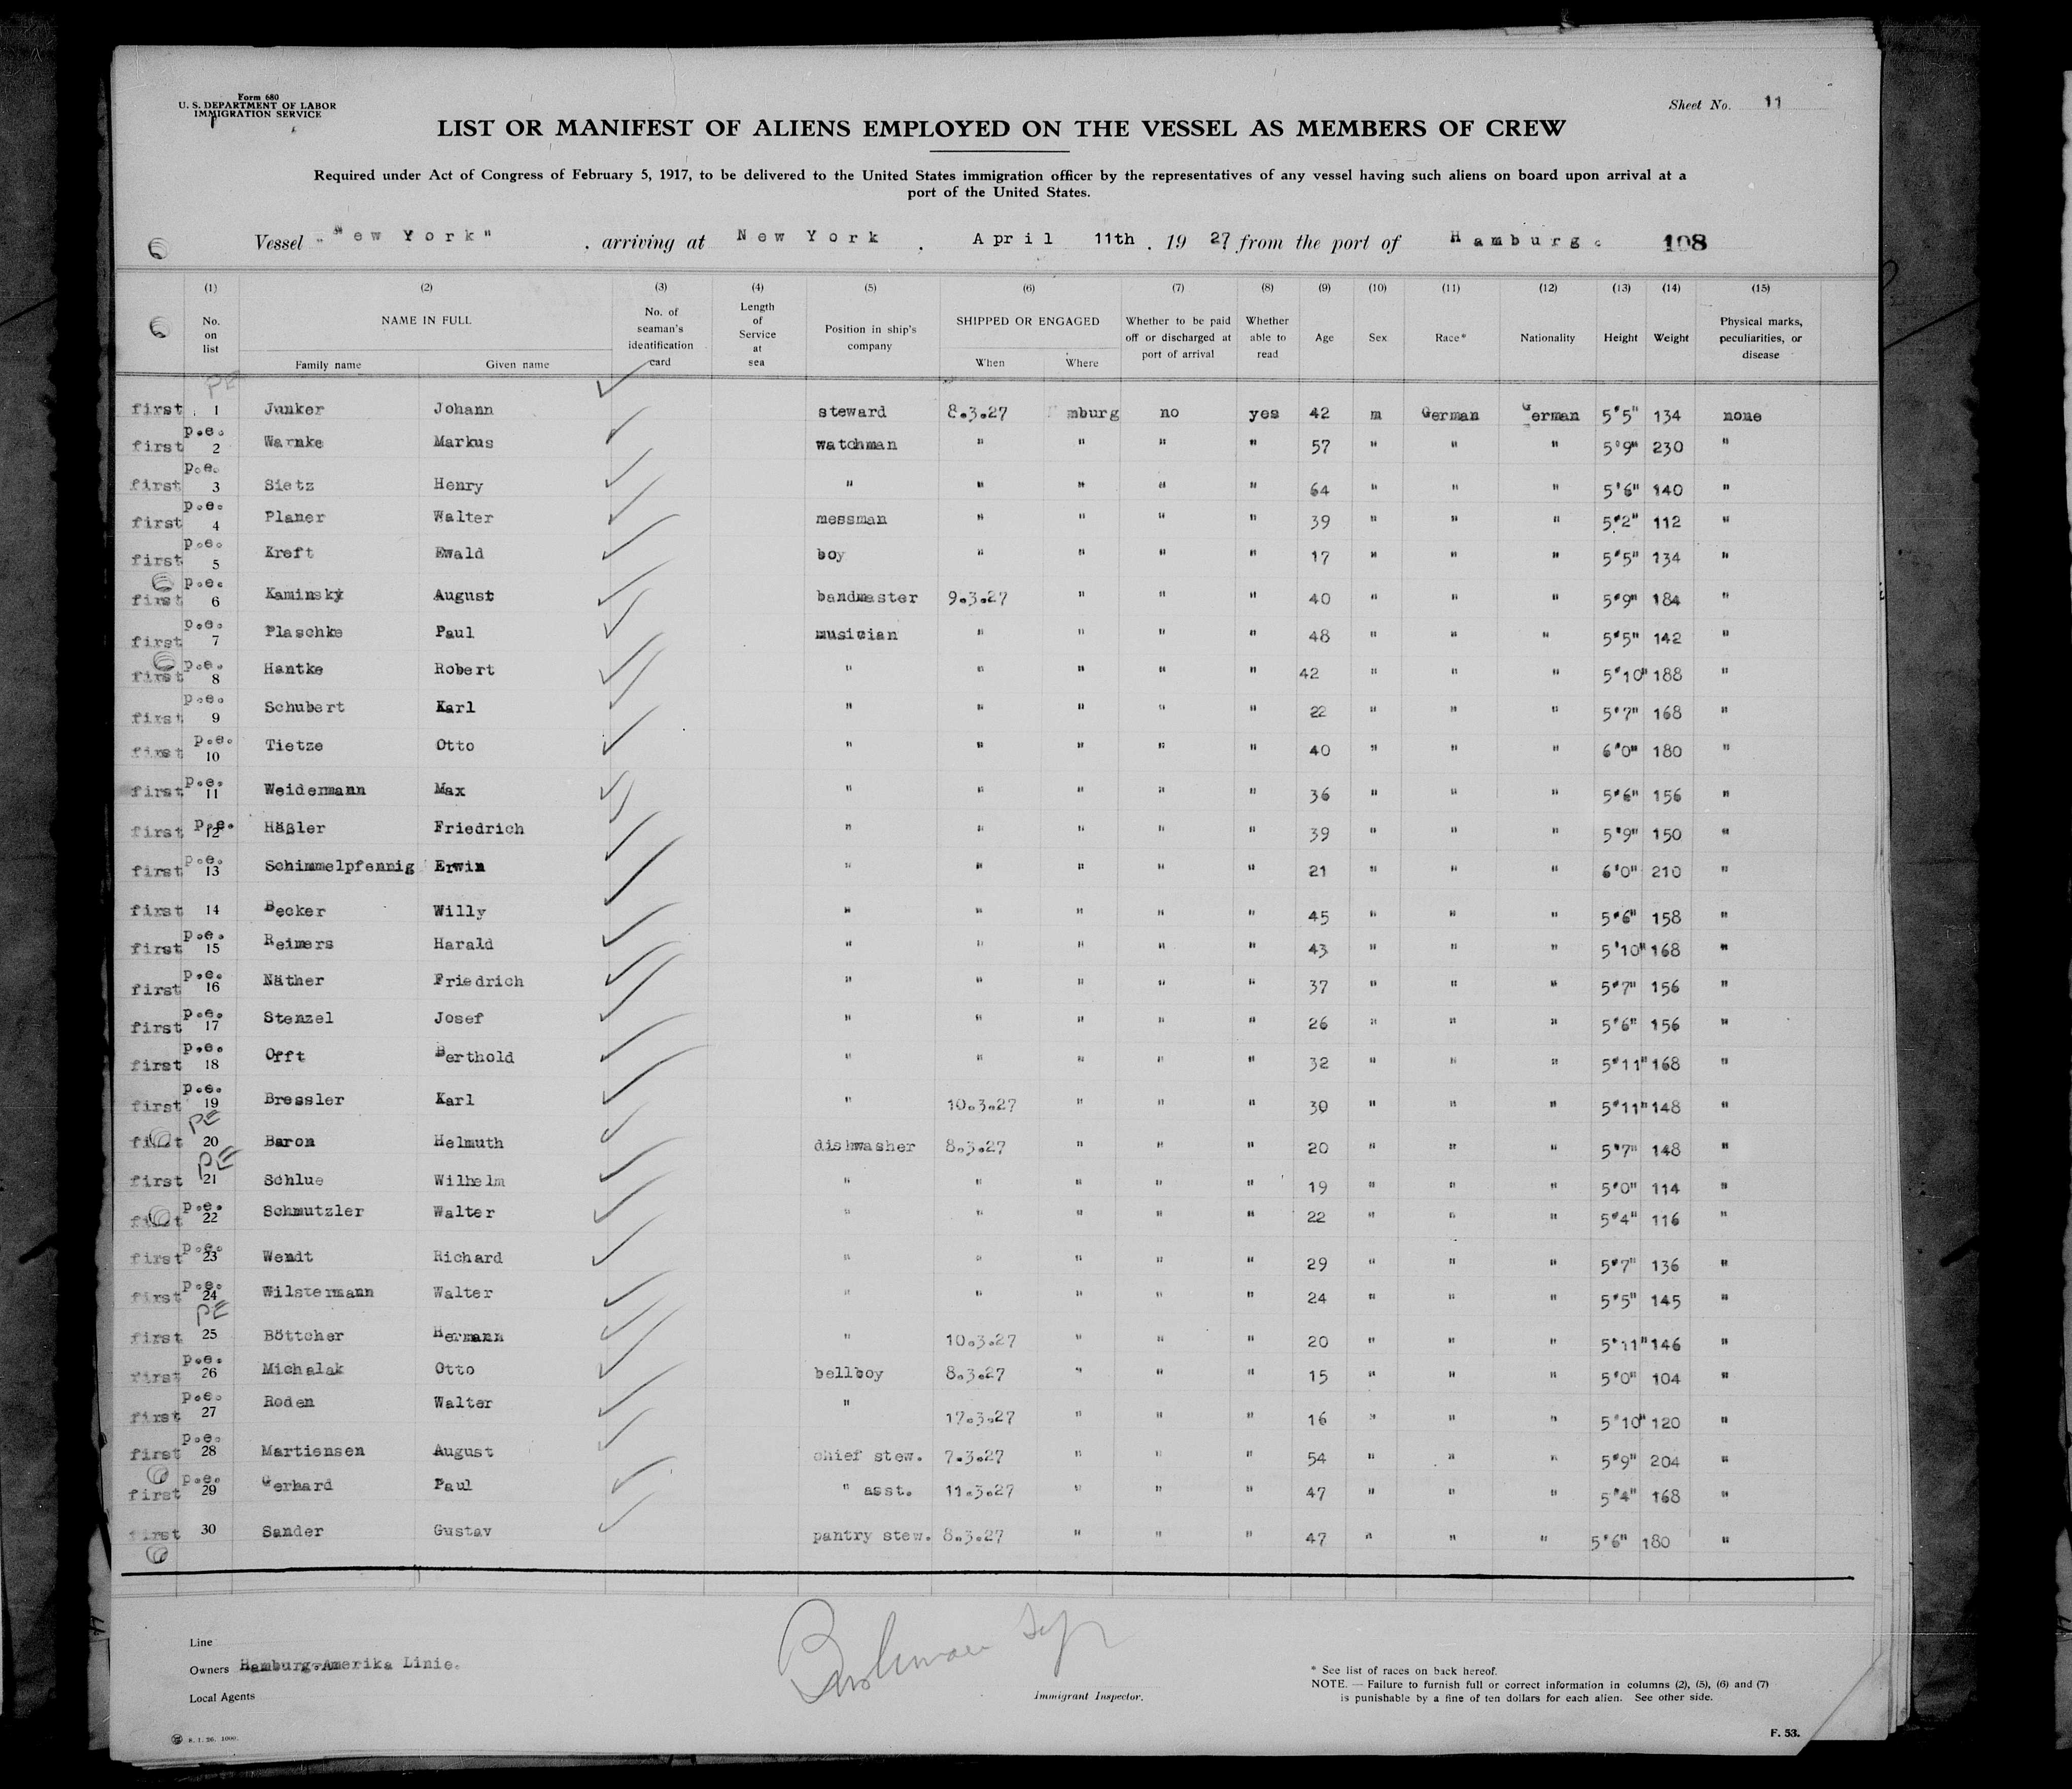 Form 680
U. S. DEPARTMENT OF LABOR
IMMIGRATION SERVICE
Sheet No. 11
LIST OR MANIFEST OF ALIENS EMPLOYED ON THE VESSEL AS MEMBERS OF CREW
Required under Act of Congress of February 5, 1917, to be delivered to the United States immigration officer by the representatives of any vessel having such aliens on board upon arrival at a
port of the United States.
Vessel "New York" , arriving at New York , April 11th , 19 27 from the port of Hamburg. 108
(1) (2) (3) (4) (5) (6) (7) (8) (9) (10) (11) (12) (13) (14) (15)
No. on list NAME IN FULL Family name Given name No. of seaman's identification card Length of Service at sea Position in ship's company SHIPPED OR ENGAGED When Where Whether to be paid off or discharged at port of arrival Whether able to read Age Sex Race* Nationality Height Weight Physical marks, peculiarities, or disease
PE
first 1 Junker Johann steward 8.3.27 mburg no yes 42 m German German 5'5" 134 none
first p.e. 2 Warnke Markus watchman " " " " 57 " " " 5'9" 230 "
first p.e. 3 Sietz Henry " " " " " 64 " " " 5'6" 140 "
first p.e. 4 Planer Walter messman " " " " 39 " " " 5'2" 112 "
first p.e. 5 Kreft Ewald boy " " " " 17 " " " 5'5" 134 "
first p.e. 6 Kaminsky August bandmaster 9.3.27 " " " 40 " " " 5'9" 184 "
first p.e. 7 Plaschke Paul musician " " " " 48 " " " 5'5" 142 "
first p.e. 8 Hantke Robert " " " " " 42 " " " 5'10" 188 "
first p.e. 9 Schubert Karl " " " " " 22 " " " 5'7" 168 "
first p.e. 10 Tietze Otto " " " " " 40 " " " 6'0" 180 "
first p.e. 11 Weidermann Max " " " " " 36 " " " 5'6" 156 "
first p.e. 12 Häßler Friedrich " " " " " 39 " " " 5'9" 150 "
first p.e. 13 Schimmelpfennig Erwin " " " " " 21 " " " 6'0" 210 "
first 14 Becker Willy " " " " " 45 " " " 5'6" 158 "
first p.e. 15 Reimers Harald " " " " " 43 " " " 5'10" 168 "
first p.e. 16 Näther Friedrich " " " " " 37 " " " 5'7" 156 "
first p.e. 17 Stenzel Josef " " " " " 26 " " " 5'6" 156 "
first p.e. 18 Offt Berthold " " " " " 32 " " " 5'11" 168 "
first p.e. 19 Bressler Karl " 10.3.27 " " " 30 " " " 5'11" 148 "
first PE 20 Baron Helmuth dishwasher 8.3.27 " " " 20 " " " 5'7" 148 "
first PE 21 Schlue Wilhelm " " " " " 19 " " " 5'0" 114 "
first p.e. 22 Schmutzler Walter " " " " " 22 " " " 5'4" 116 "
first p.e. 23 Wendt Richard " " " " " 29 " " " 5'7" 136 "
first p.e. 24 Wilstermann Walter " " " " " 24 " " " 5'5" 145 "
first PE 25 Böttcher Hermann " 10.3.27 " " " 20 " " " 5'11" 146 "
first p.e. 26 Michalak Otto bellboy 8.3.27 " " " 15 " " " 5'0" 104 "
first p.e. 27 Roden Walter " 17.3.27 " " " 16 " " " 5'10" 120 "
first p.e. 28 Martiensen August chief stew. 7.3.27 " " " 54 " " " 5'9" 204 "
first p.e. 29 Gerhard Paul " asst. 11.3.27 " " " 47 " " " 5'4" 168 "
first 30 Sander Gustav pantry stew. 8.3.27 " " " 47 " " " 5'6" 180 "
Line
Owners Hamburg-Amerika Linie.
Local Agents
Immigrant Inspector.
* See list of races on back hereof.
NOTE. — Failure to furnish full or correct information in columns (2), (5), (6) and (7)
is punishable by a fine of ten dollars for each alien. See other side.
8. 1. 26. 1000.
F. 53.